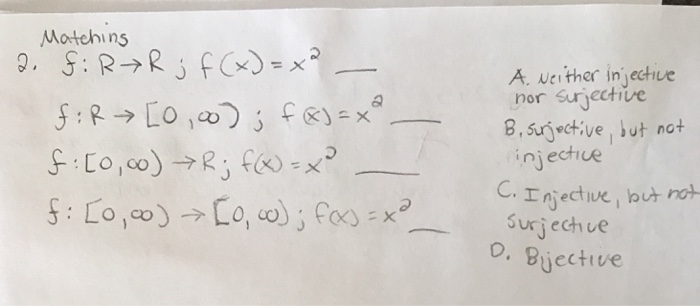 Matching
2. f: R→R ; f(x) = x² __
f: R → [0, ∞) ; f(x) = x² __
f: [0, ∞) → R; f(x) = x² __
f: [0, ∞) → [0, ∞) ; f(x) = x² __
A. Neither injective
nor surjective
B. surjective, but not
injective
C. Injective, but not
surjective
D. Bijective